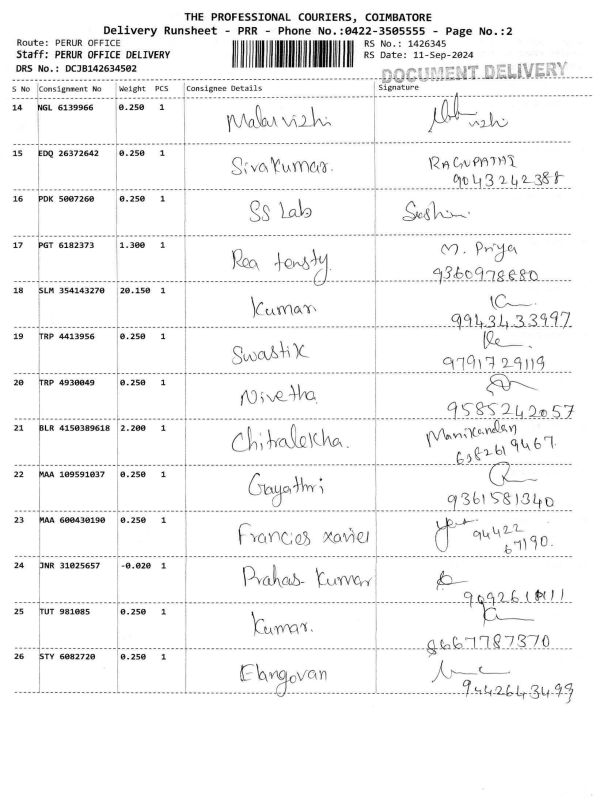 THE PROFESSIONAL COURIERS, COIMBATORE
Delivery Runsheet - PRR - Phone No.:0422-3505555 - Page No.:2
Route: PERUR OFFICE RS No.: 1426345
Staff: PERUR OFFICE DELIVERY RS Date: 11-Sep-2024
DRS No.: DCJB142634502
DOCUMENT DELIVERY
S No Consignment No Weight PCS Consignee Details Signature
14 NGL 6139966 0.250 1 Malarvizhi
vizhi
15 EDQ 26372642 0.250 1 Sivakumar. RAGUPATHI
9043242388
16 PDK 5007260 0.250 1 SS Lab
17 PGT 6182373 1.300 1 Rea M. Priya
9360978680
18 SLM 354143270 20.150 1 Kumar.
9943433997
19 TRP 4413956 0.250 1 Swastik
9791729119
20 TRP 4930049 0.250 1 Nivetha
9585242057
21 BLR 4150389618 2.200 1 Chitralekha. Manikandan
6382619467.
22 MAA 109591037 0.250 1 Gayathri
9361581340
23 MAA 600430190 0.250 1 Francies xavier
94422
67190.
24 JNR 31025657 -0.020 1 Prahas- Kumar
25 TUT 981085 0.250 1 Kumar.
8667787370
26 STY 6082720 0.250 1 Elangovan
9442643499